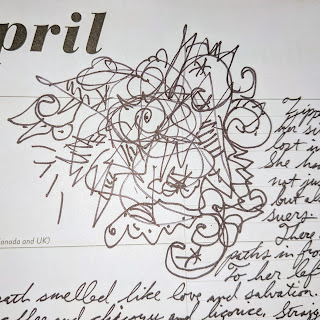 pril
Canada and UK)
her si
lost in
She ha
not ju
but al
suers.
There
paths in fro
To her left
path smelled like love and salvation.
coffee and chicory and licorice. Stragg